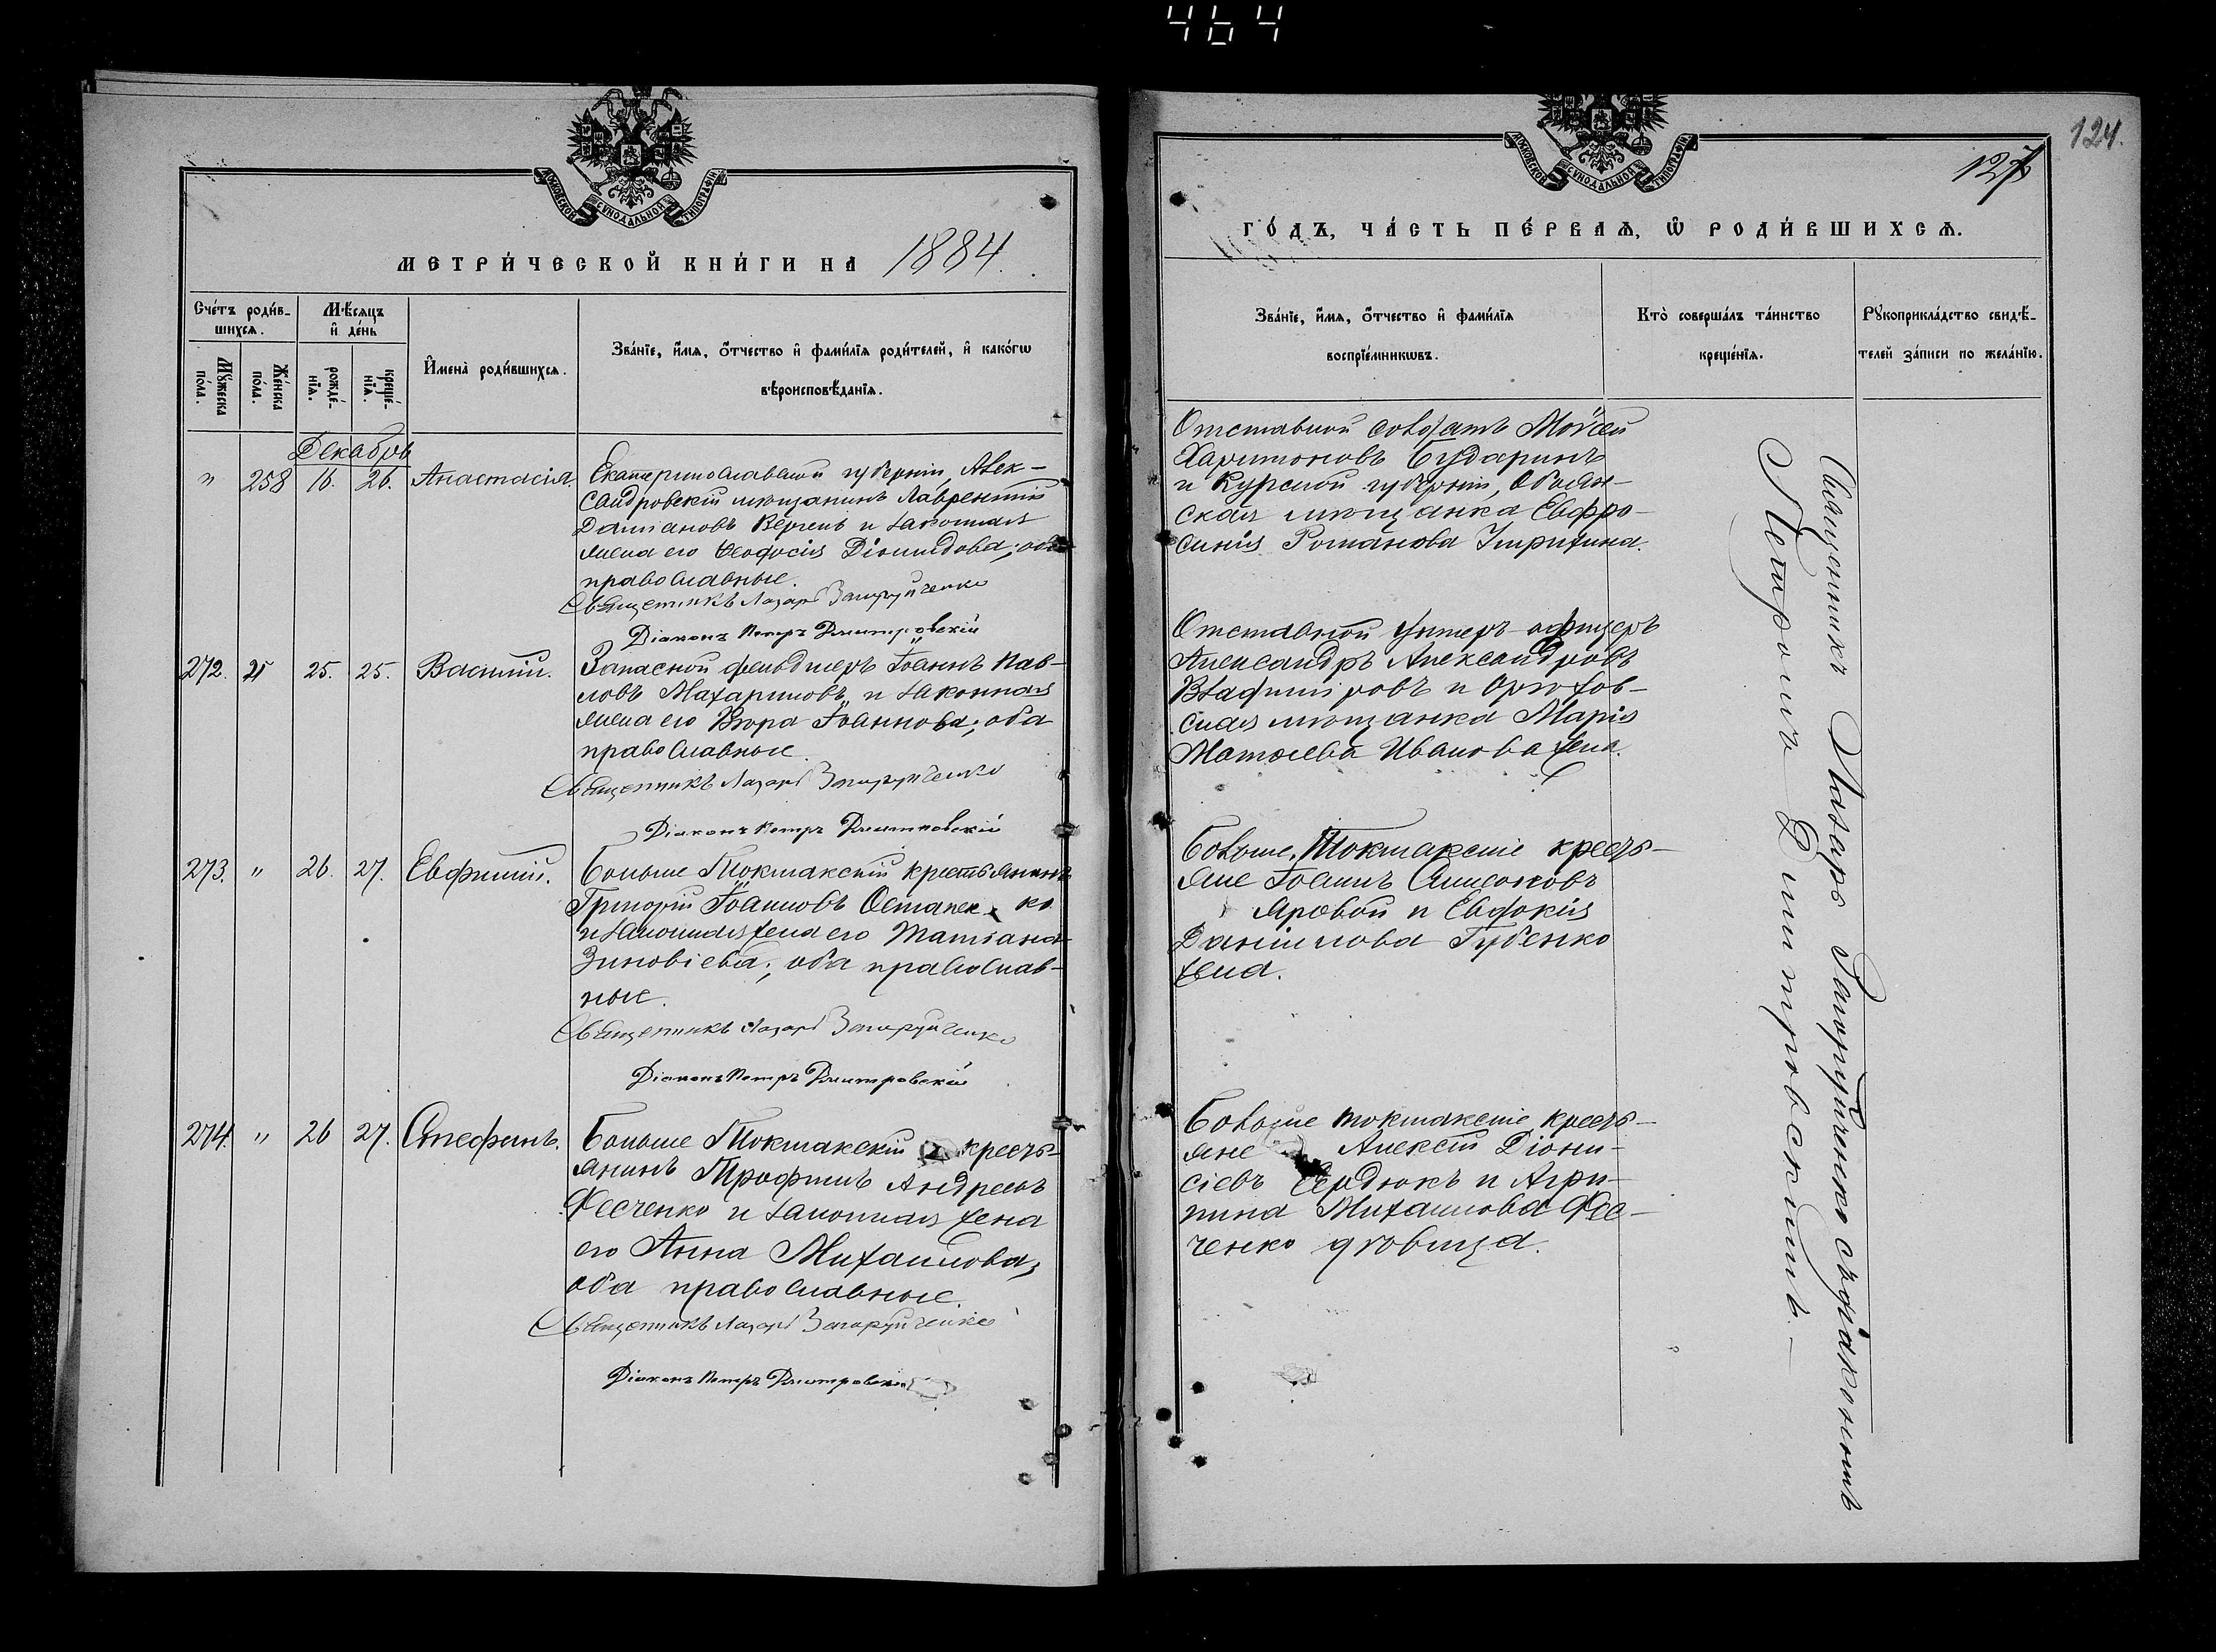 464
МОСКОВСКОЙ СУНОДАЛЬНОЙ ТИПОГРАФІИ
МЕТРИ́ЧЕСКОЙ КНИ́ГИ НА 1884.
Сче́тъ роди́в-
шихсѧ.
Мѣ́сѧцъ
и҆ де́нь
Мꙋ́жеска по́ла.
Же́нска по́ла.
рожде́-нїѧ.
креще́-нїѧ.
И҆мена̀ роди́вшихсѧ.
Зва́нїе, и҆́мѧ, ѻ҆́тчество и҆ фами́лїѧ роди́телей, и҆ како́гѡ
вѣроисповѣ́данїѧ.
Декабрь
" 258 16. 26. Анастасія.
Екатеринославской губерніи, Алек-
сандровскій мѣщанинъ Лаврентій
Даміановъ и законная
жена его Ѳеодосія Діомидова; оба
православные.
Священникъ Лазарь Загоруйченко
Діаконъ Петръ Дмитровскій
272. 25. 25. Василій.
Запасной фельдшеръ Іоаннъ Пав-
ловъ Махариновъ и законная
жена его Вѣра Іоаннова; оба
православные.
Священникъ Лазарь Загоруйченко
Діаконъ Петръ Дмитровскій
273. " 26. 27. Евфимій.
Больше Токмакскій крестьянинъ
Григорій Іоанновъ Остапен ко
и законная жена его Татіана
Зиновіева; оба православ-
ные.
Священникъ Лазарь Загоруйченко
Діаконъ Петръ Дмитровскій
274. " 26 27. Стефанъ.
Больше Токмакскій кресть-
янинъ Трофимъ Андреевъ
Фесченко и законная жена
его Анна Михаилова;
оба православные.
Священникъ Лазарь Загоруйченко
Діаконъ Петръ Дмитровскій
124.
127
МОСКОВСКОЙ СУНОДАЛЬНОЙ ТИПОГРАФІИ
ГО́ДЪ, ЧА́СТЬ ПЕ́РВАѦ, Ѡ҆ РОДИ́ВШИХСѦ.
Зва́нїе, и҆́мѧ, ѻ҆́тчество и҆ фами́лїѧ
воспрїе́мникѡвъ.
Кто̀ соверша́лъ та́инство
креще́нїѧ.
Рꙋкоприкла́дство свидѣ́-
телей за́писи по жела́нїю.
Отставной солдатъ Моисей
Харитоновъ Бударинъ
и Курской губерніи, Обоян-
ская мѣщанка Евфро-
синія Романова
Отставной Унтеръ-офицеръ
Александръ Александровъ
Владиміровъ и Орѣхов-
ская мѣщанка Марія
Матѳеева Иванова жена.
Больше Токмакскіе кресть-
яне Іоаннъ Симеоновъ
Яровой и Евдокія
Даніилова Губенко
жена.
Больше токмакскіе кресть-
яне Алексѣй Діони-
сіевъ Сердюкъ и Агри-
пина Михаилова Фес-
ченко дѣвица.
Священникъ Лазарь Загоруйченко съ діакономъ
Петромъ Димитровскимъ. —